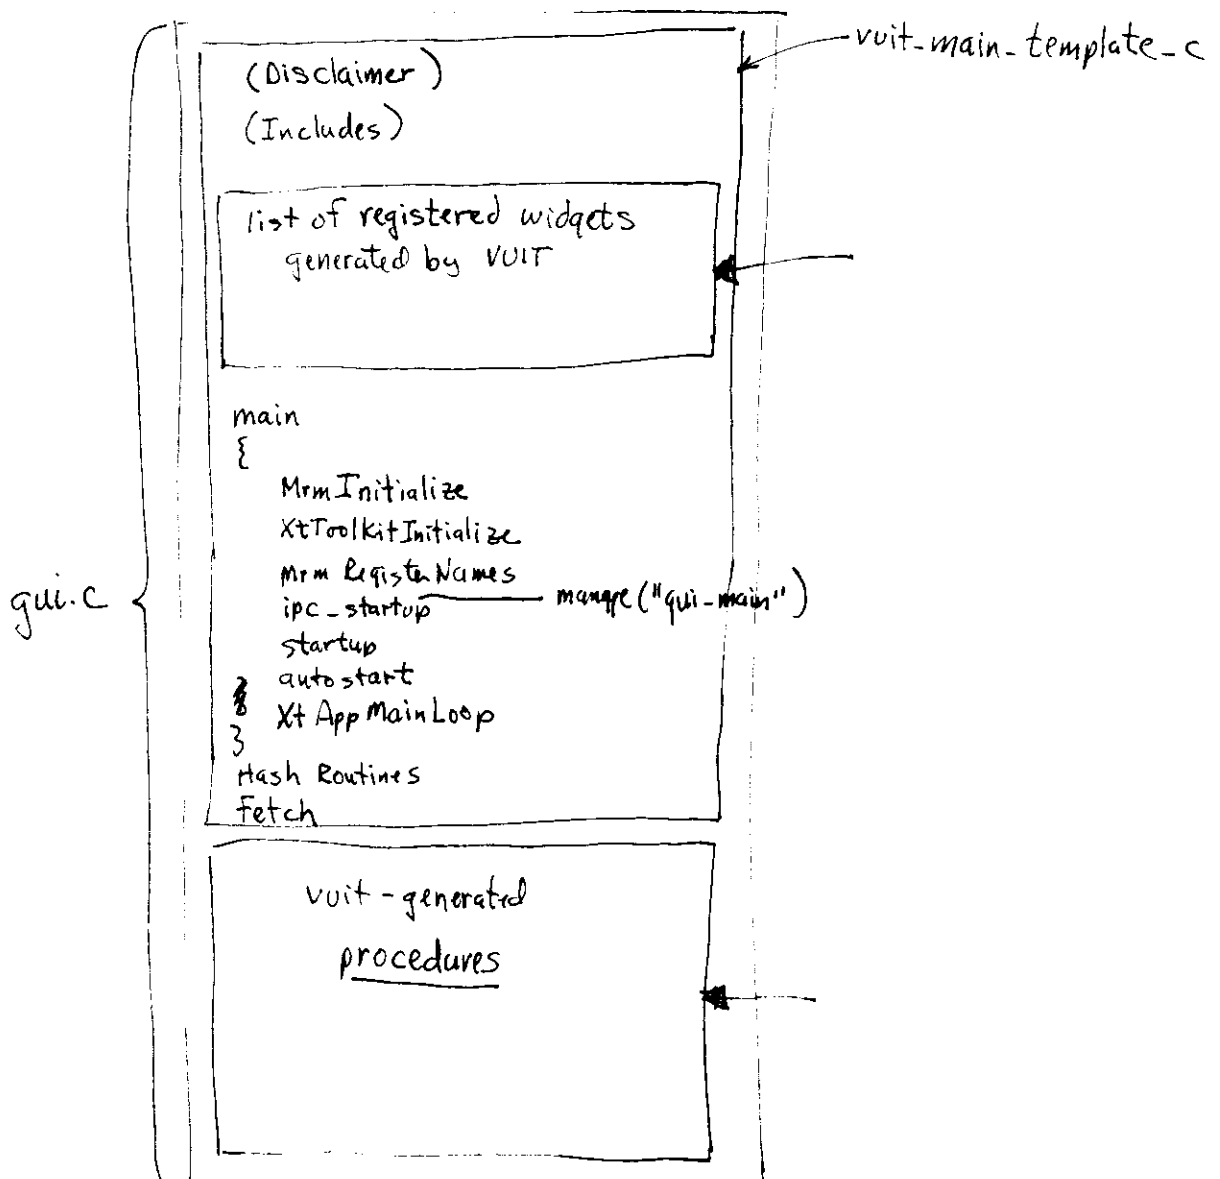 vuit-main-template-c
(Disclaimer)
(Includes)
list of registered widgets
generated by VUIT
main
{
MrmInitialize
XtToolkitInitialize
Mrm RegisterNames
ipc-startup
manage("gui-main")
startup
autostart
Xt App MainLoop
}
Hash Routines
Fetch
gui.c
vuit-generated
procedures